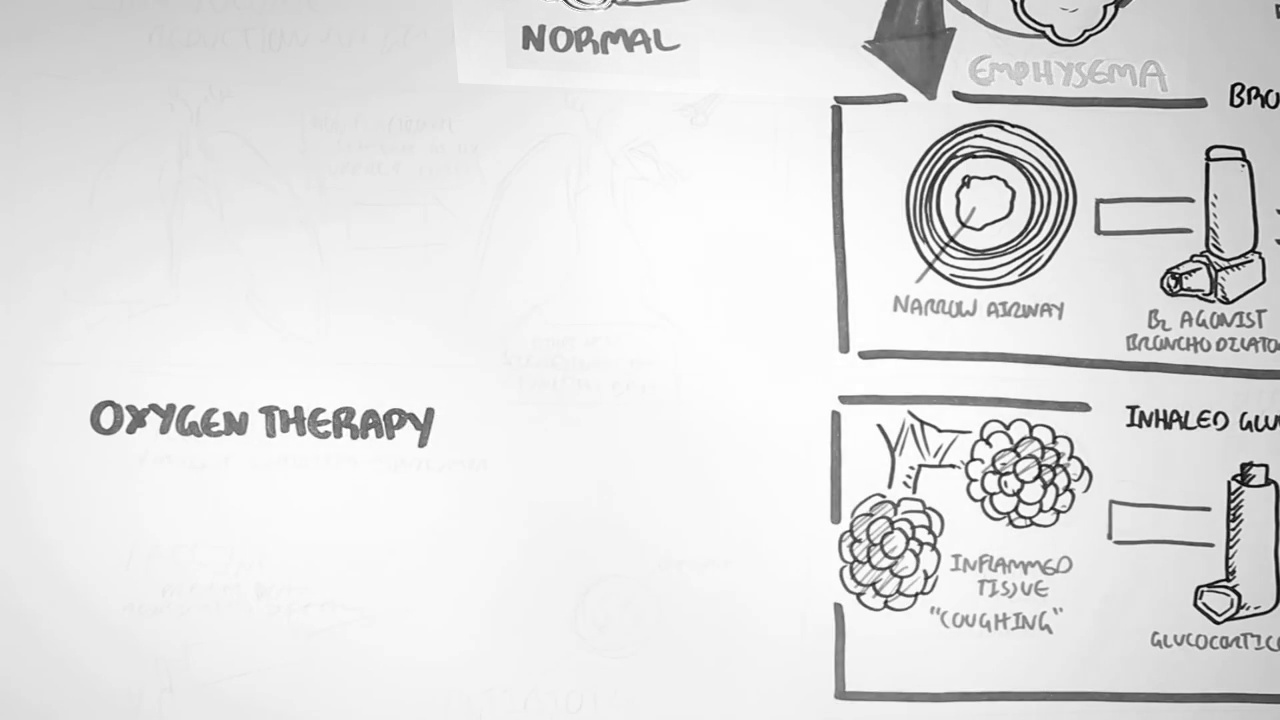 NORMAL
EMPHYSEMA
BRO
NARROW AIRWAY
B2 AGONIST
BRONCHODILATO
OXYGEN THERAPY
INHALED GLU
INFLAMMED
TISSUE
"COUGHING"
GLUCOCORTIC